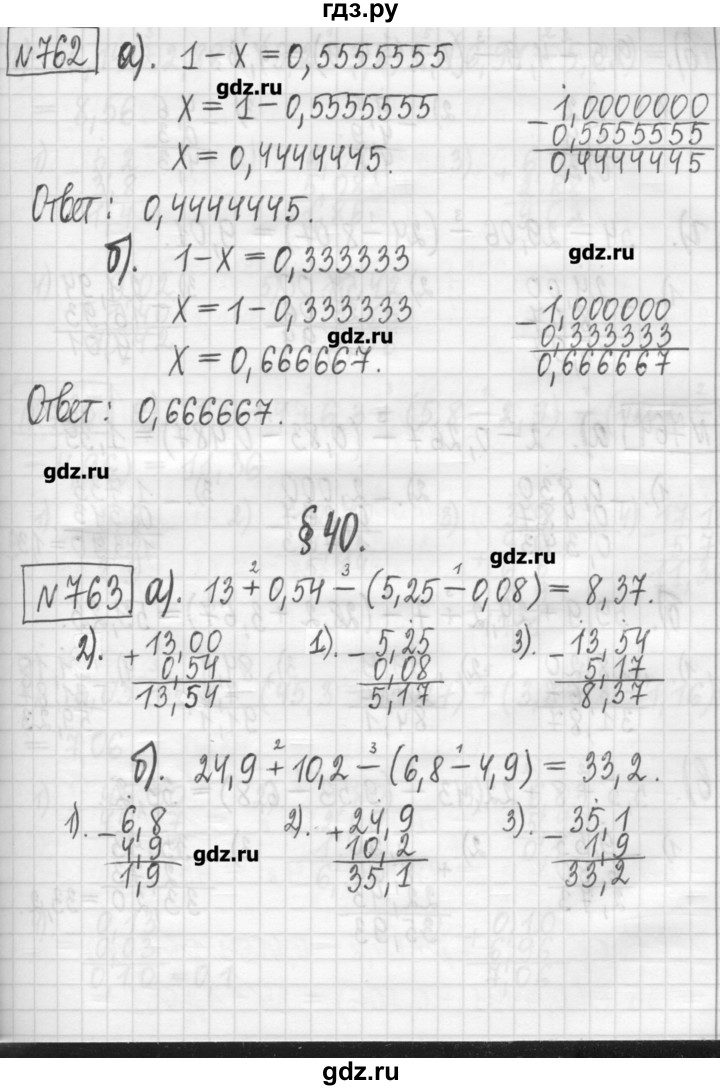 гдз.ру
№762 а). 1 - x = 0,5555555
gdz.ru
x = 1 - 0,5555555
x = 0,4444445.
- 1,0000000
0,5555555
0,4444445
Ответ: 0,4444445.
б). 1 - x = 0,333333
gdz.ru
x = 1 - 0,333333
gdz.ru
x = 0,666667.
- 1,000000
0,333333
0,666667
Ответ: 0,666667.
gdz.ru
§ 40.
gdz.ru
2 3 1
№763 а). 13 + 0,54 - (5,25 - 0,08) = 8,37.
2). + 13,00
0,54
13,54
1). - 5,25
0,08
5,17
3). - 13,54
5,17
8,37
2 3 1
б). 24,9 + 10,2 - (6,8 - 4,9) = 33,2.
1). - 6,8
4,9
1,9
gdz.ru
2). + 24,9
10,2
35,1
3). - 35,1
1,9
33,2
gdz.ru